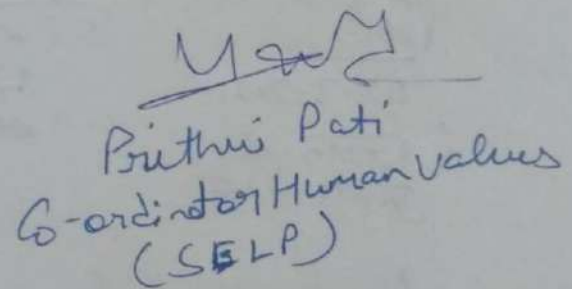 Prithvi Pati
Co-ordinator Human Values
(SELP)